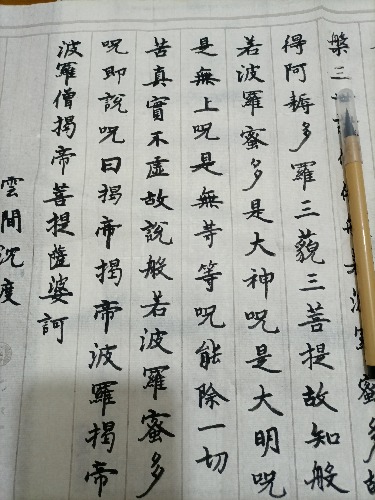 槃三若波蜜多故
得阿耨多羅三藐三菩提故知般
若波羅蜜多是大神呪是大明呪
是無上呪是無等等呪能除一切
苦真實不虛故說般若波羅蜜多
呪即說呪曰揭帝揭帝波羅揭帝
波羅僧揭帝菩提薩婆訶
雲間沉度